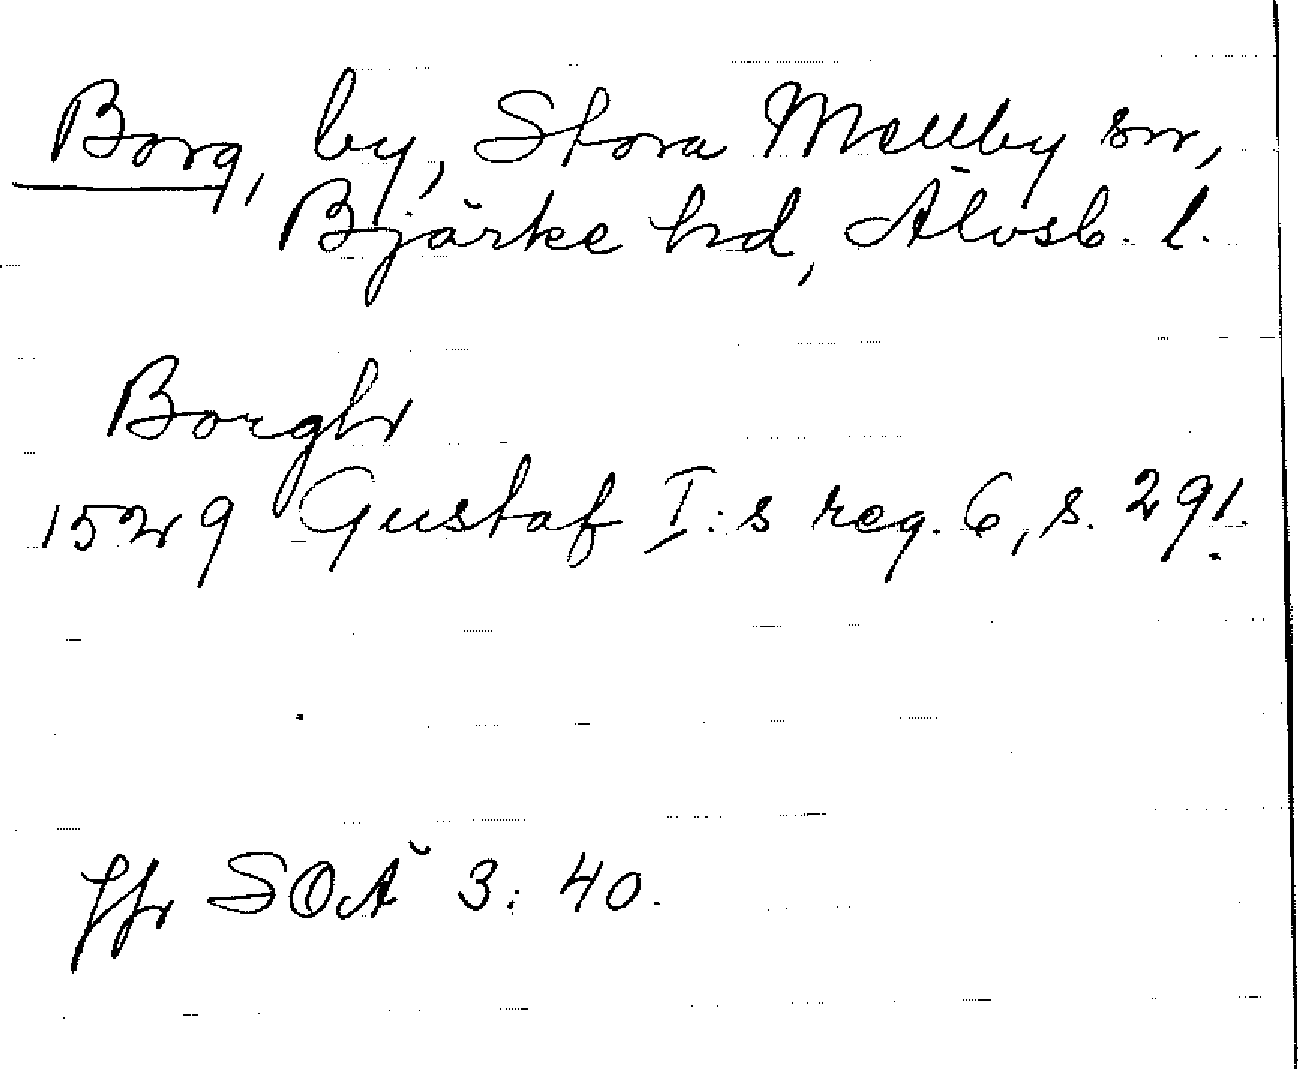 Borg, by, Stora Mellby sn,
Bjärke hd, Älvsb. l.
Borgh
1529 Gustaf I:s reg. 6, s. 291.
Jfr SOÄ 3: 40.